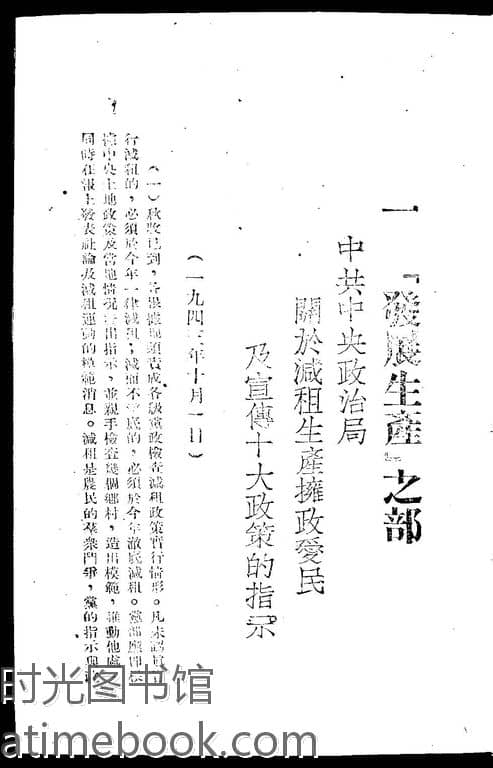 一 「發展生產」之部
中共中央政治局
關於減租生產擁政愛民
及宣傳十大政策的指示
(一九四三年十月一日)
(一)秋收已到,各根據地須責成各級黨政檢查減租政策實行情形。凡未認眞實
行減租的,必須於今年一律減租;減而不徹底的,必須於今年徹底減租。黨部應卽根
據中央土地政策及當地情況發出指示,並親手檢查幾個鄉村,造出模範,推動他處。
同時在報上發表社論及減租運動的模範消息。減租是農民的羣衆鬥爭,黨的指示與
时光图书馆
atimebook.com